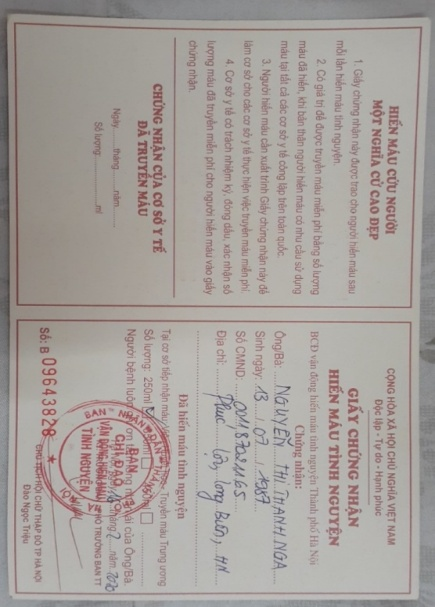 HIẾN MÁU CỨU NGƯỜI
MỘT NGHĨA CỬ CAO ĐẸP
1. Giấy chứng nhận này được trao cho người hiến máu sau
mỗi lần hiến máu tình nguyện.
2. Có giá trị để được truyền máu miễn phí bằng số lượng
máu đã hiến, khi bản thân người hiến máu có nhu cầu sử dụng
máu tại tất cả các cơ sở y tế công lập trên toàn quốc.
3. Người hiến máu cần xuất trình Giấy chứng nhận này để
làm cơ sở cho các cơ sở y tế thực hiện việc truyền máu miễn phí.
4. Cơ sở y tế có trách nhiệm ký, đóng dấu, xác nhận số
lượng máu đã truyền miễn phí cho người hiến máu vào giấy
chứng nhận.
CHỨNG NHẬN CỦA CƠ SỞ Y TẾ
ĐÃ TRUYỀN MÁU
Ngày......tháng......năm......
Số lượng:............ml
CỘNG HÒA XÃ HỘI CHỦ NGHĨA VIỆT NAM
Độc lập - Tự do - Hạnh phúc
GIẤY CHỨNG NHẬN
HIẾN MÁU TÌNH NGUYỆN
BCĐ vận động hiến máu tình nguyện Thành phố Hà Nội
Chứng nhận:
Ông/Bà: NGUYỄN THỊ THANH NGA
Sinh ngày: 13 / 07 / 1987
Số CMND:
Địa chỉ: Phúc Lợi, Long Biên, HN
Đã hiến máu tình nguyện
Tại cơ sở tiếp nhận máu: Truyền máu Trung ương
Số lượng: 250ml
Người bệnh luôn ơn tấm lòng nhân ái của Ông/Bà.
tháng 2 năm 2020
PHÓ TRƯỞNG BAN TT
BAN
CHỈ ĐẠO
TÌNH NGUYỆN
CHỦ TỊCH HỘI CHỮ THẬP ĐỎ TP HÀ NỘI
Đào Ngọc Triệu
Số: B 09643828 *